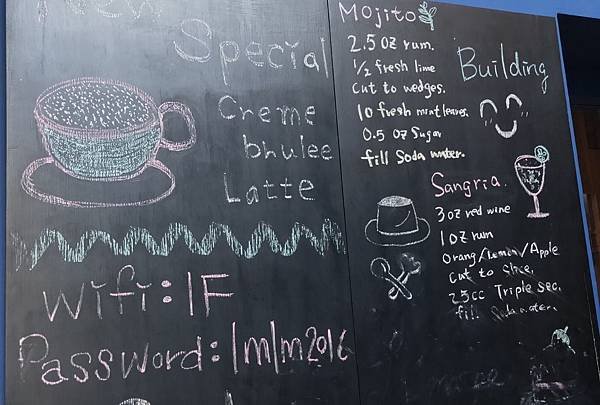 New
Special
Creme
bhulee
Latte
Wifi:1F
Password:1m1m2016
Mojito
2.5 oz rum.
1/2 fresh lime
Cut to wedges.
10 fresh mint leaves.
0.5 oz Sugar
fill Soda water.
Building
Sangria.
3 oz red wine
1 oz rum
Orang/Lemon/Apple
Cut to slice.
25cc Triple sec.
fill Soda water.